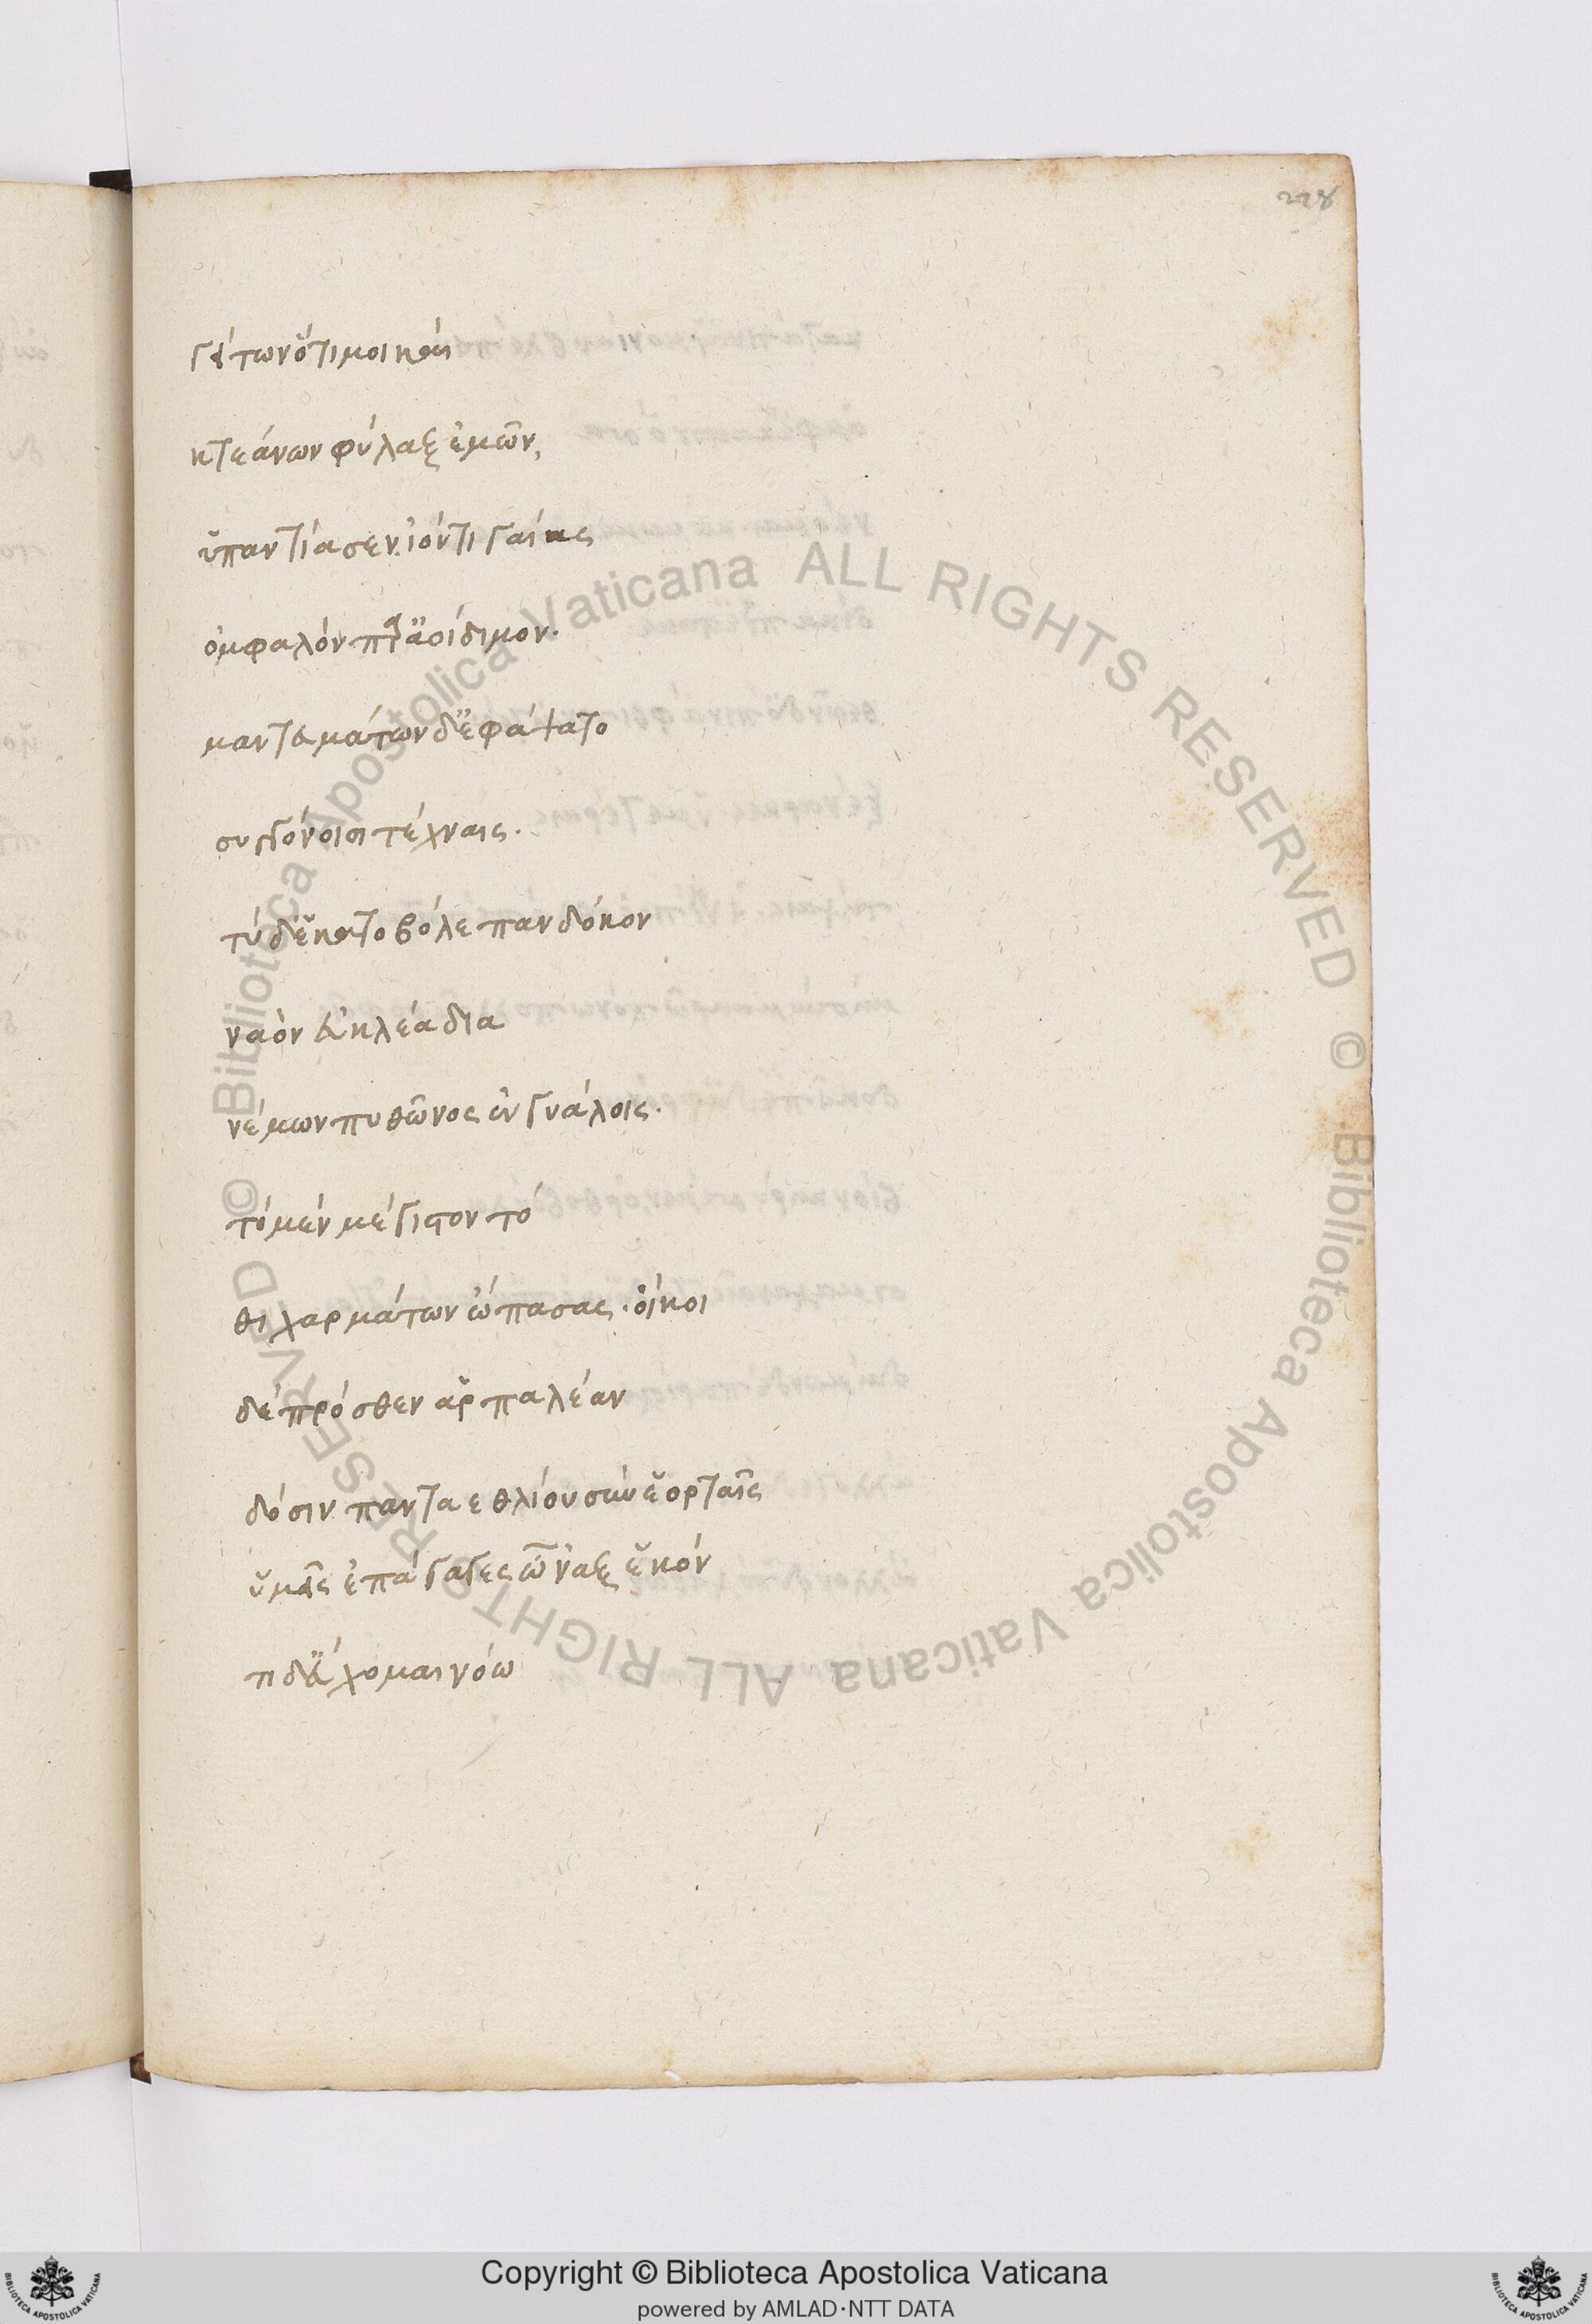 228
γείτων ὅτι μοι καὶ
κτεάνων φύλαξ ἐμῶν,
ὑπαντίασεν ἰόντι γαίας
ὀμφαλὸν παρ' ἀοίδιμον.
μαντευμάτων δ' ἐφάψατο
συγγόνοισι τέχναις.
τὺ δ' ἑκατοβόλε πάνδοκον
ναὸν εὐκλέα δια
νέμων πυθῶνος ἐν γυάλοις.
τὸ μὲν μέγιστον τό
θι χαρμάτων ὤπασας. οἴκοι
δὲ πρόσθεν ἁρπαλέαν
δόσιν πενταεθλίου σὺν ἑορταῖς
ὑμαῖς ἐπάγαγες ὦναξ ἑκόν
τι δ' εὔχομαι νόω
Copyright © Biblioteca Apostolica Vaticana
powered by AMLAD·NTT DATA
© Biblioteca Apostolica Vaticana ALL RIGHTS RESERVED
© Biblioteca Apostolica Vaticana ALL RIGHTS RESERVED
BIBLIOTECA APOSTOLICA VATICANA
BIBLIOTECA APOSTOLICA VATICANA